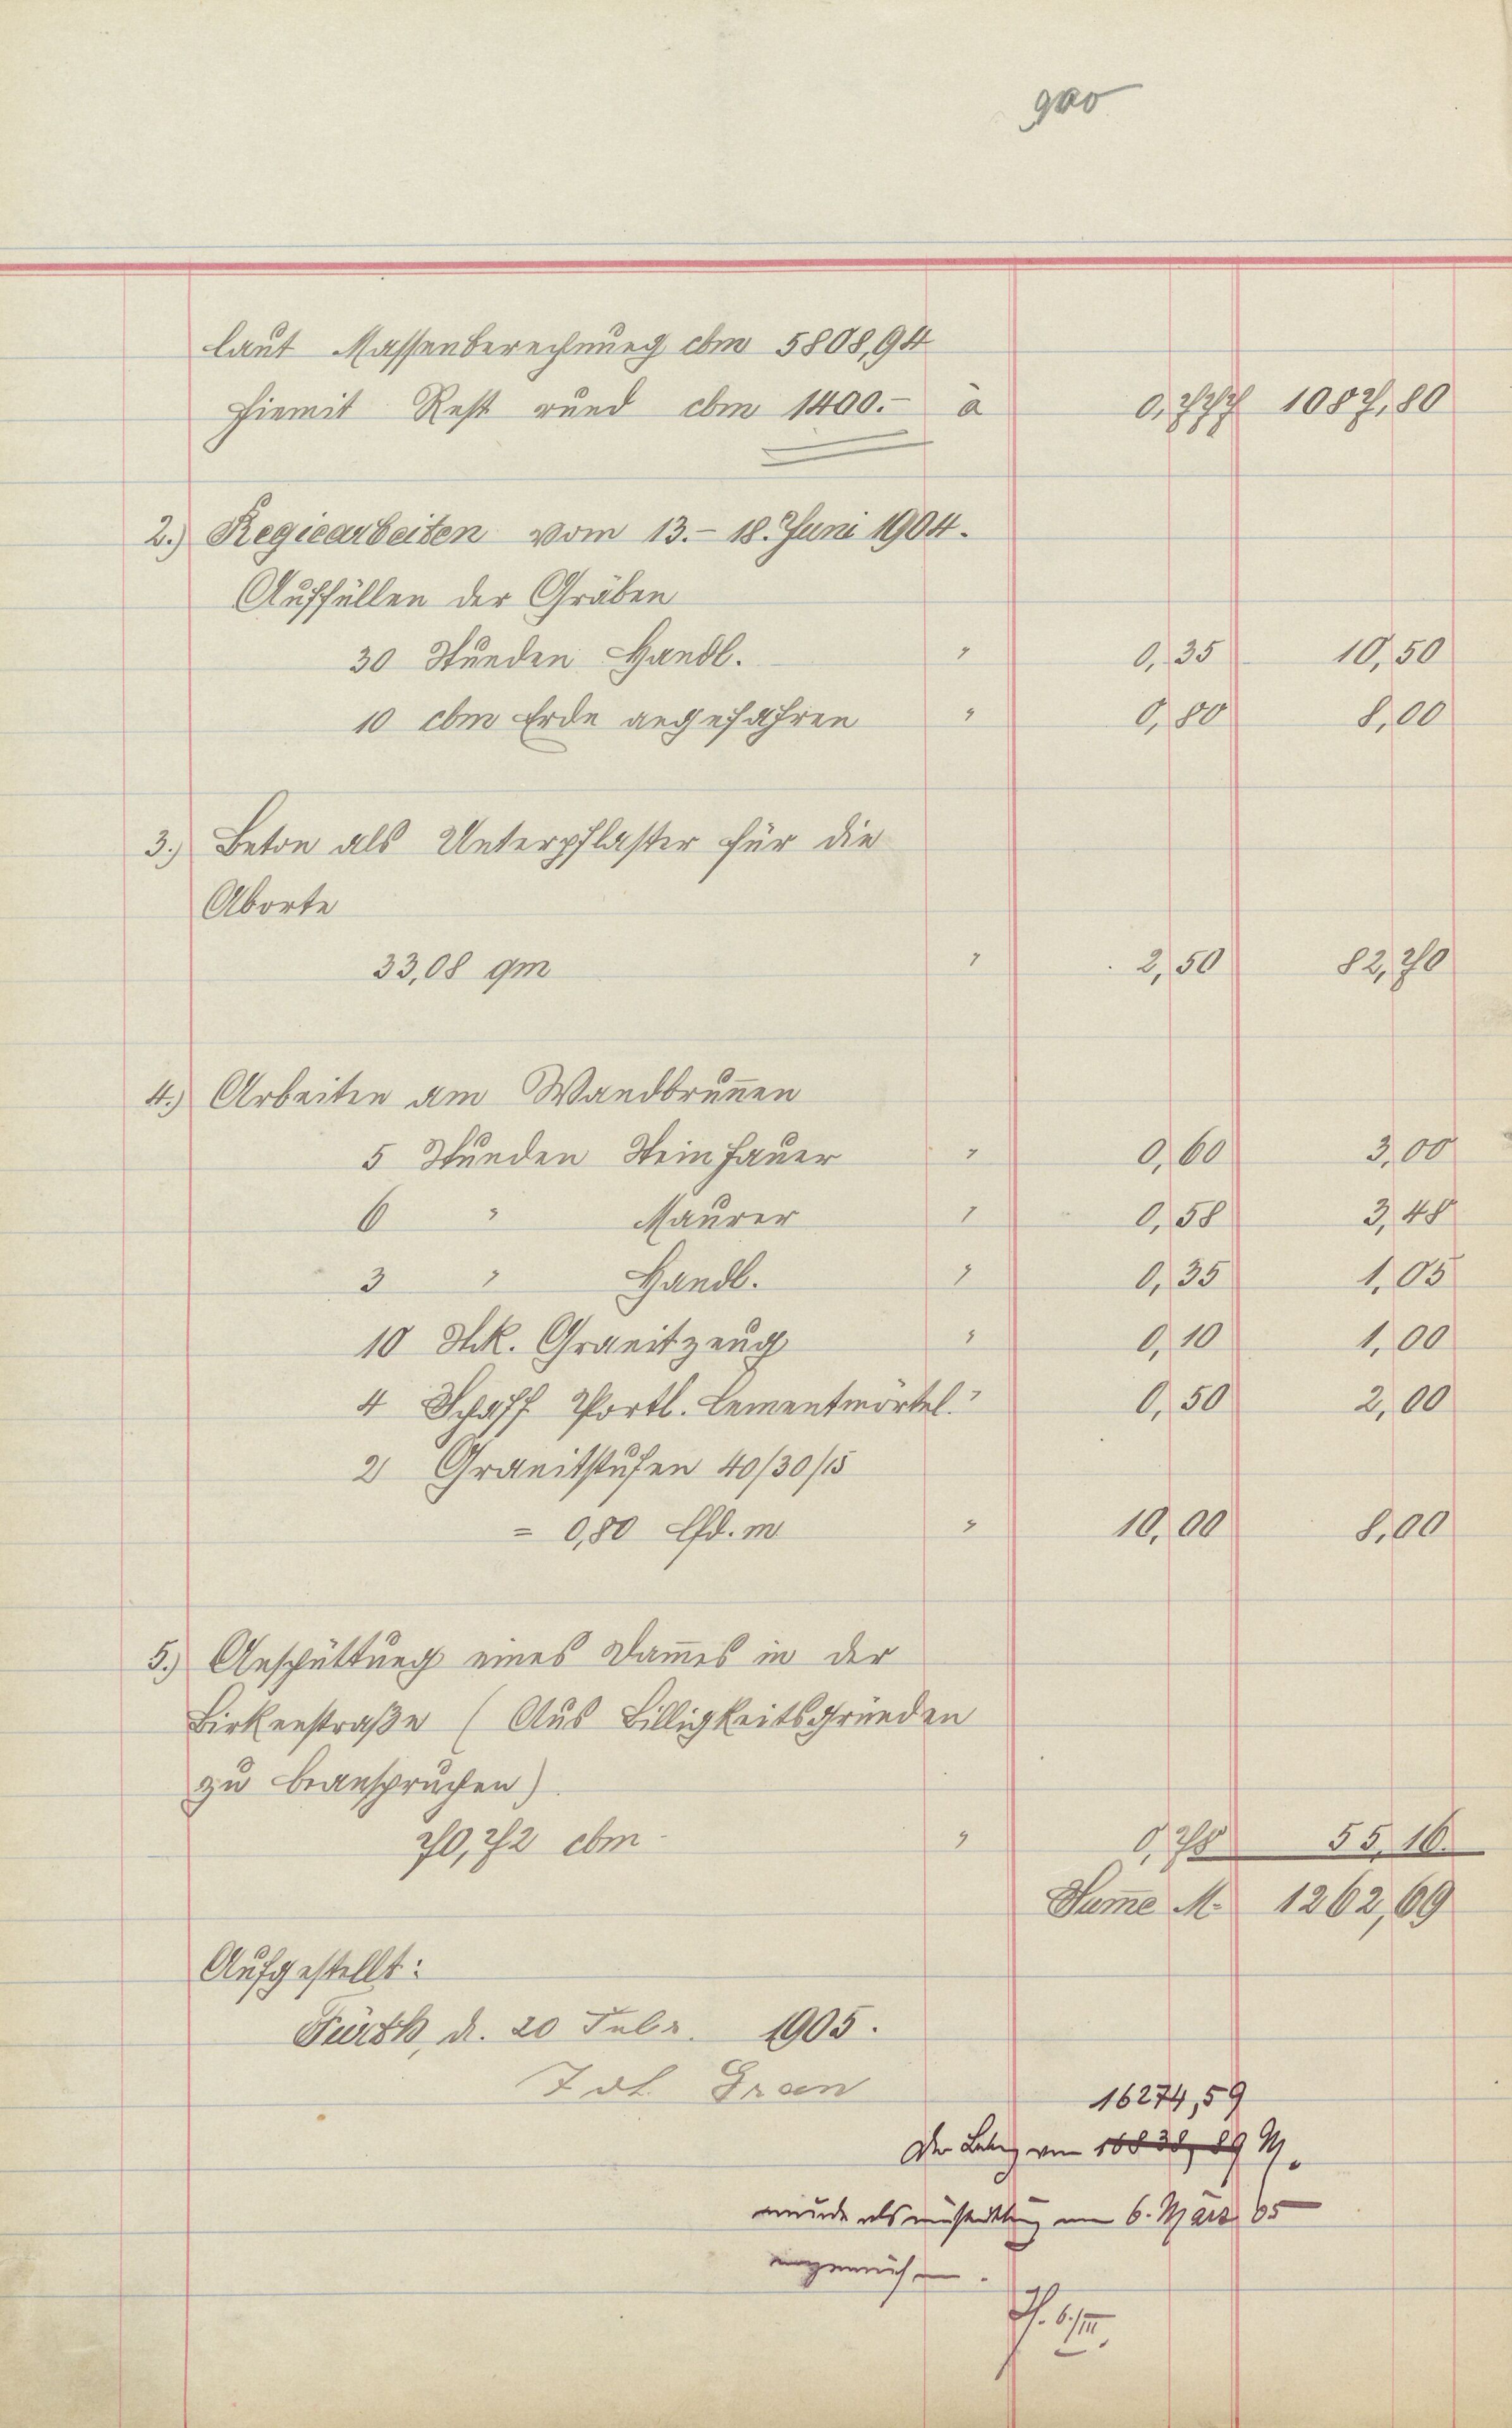 laut Massenberechnung cbm 5808,94
hiemit Rest rund cbm 1400.- à 0,777 1087,80
2.) Regiearbeiten vom 13.- 18. Juni 1904.
Auffüllen der Gräben
30 Stunden Handl. " 0,35 10,50
10 cbm Erde angefahren " 0,80 8,00
3.) Beton als Unterpflaster für die
Aborte
33,08 qm " 2,50 82,70
4.) Arbeiten am Wandbrun̅en
5 Stunden Steinhauer " 0,60 3,00
6 " Maurer " 0,58 3,48
3 " Handl. " 0,35 1,05
10 Stk. Granitzeug " 0,10 1,00
4 Schaff Portl. Cementmörtel. " 0,50 2,00
2 Granitstufen 40/30/15
= 0,80 lfd. m " 10,00 8,00
5.) Anschüttung eines Dam̅es in der
Birkenstraße (Aus Billigkeitsgründen
zu beanspruchen)
70,72 cbm " 0,78 55,16.
Sum̅e M. 1262,69
Aufgestellt:
Fürth, d. 20 Febr. 1905.
Gran
16274,59
Der Betrag von M.
wurde als am 6. März 05
angewiesen.
6/III.